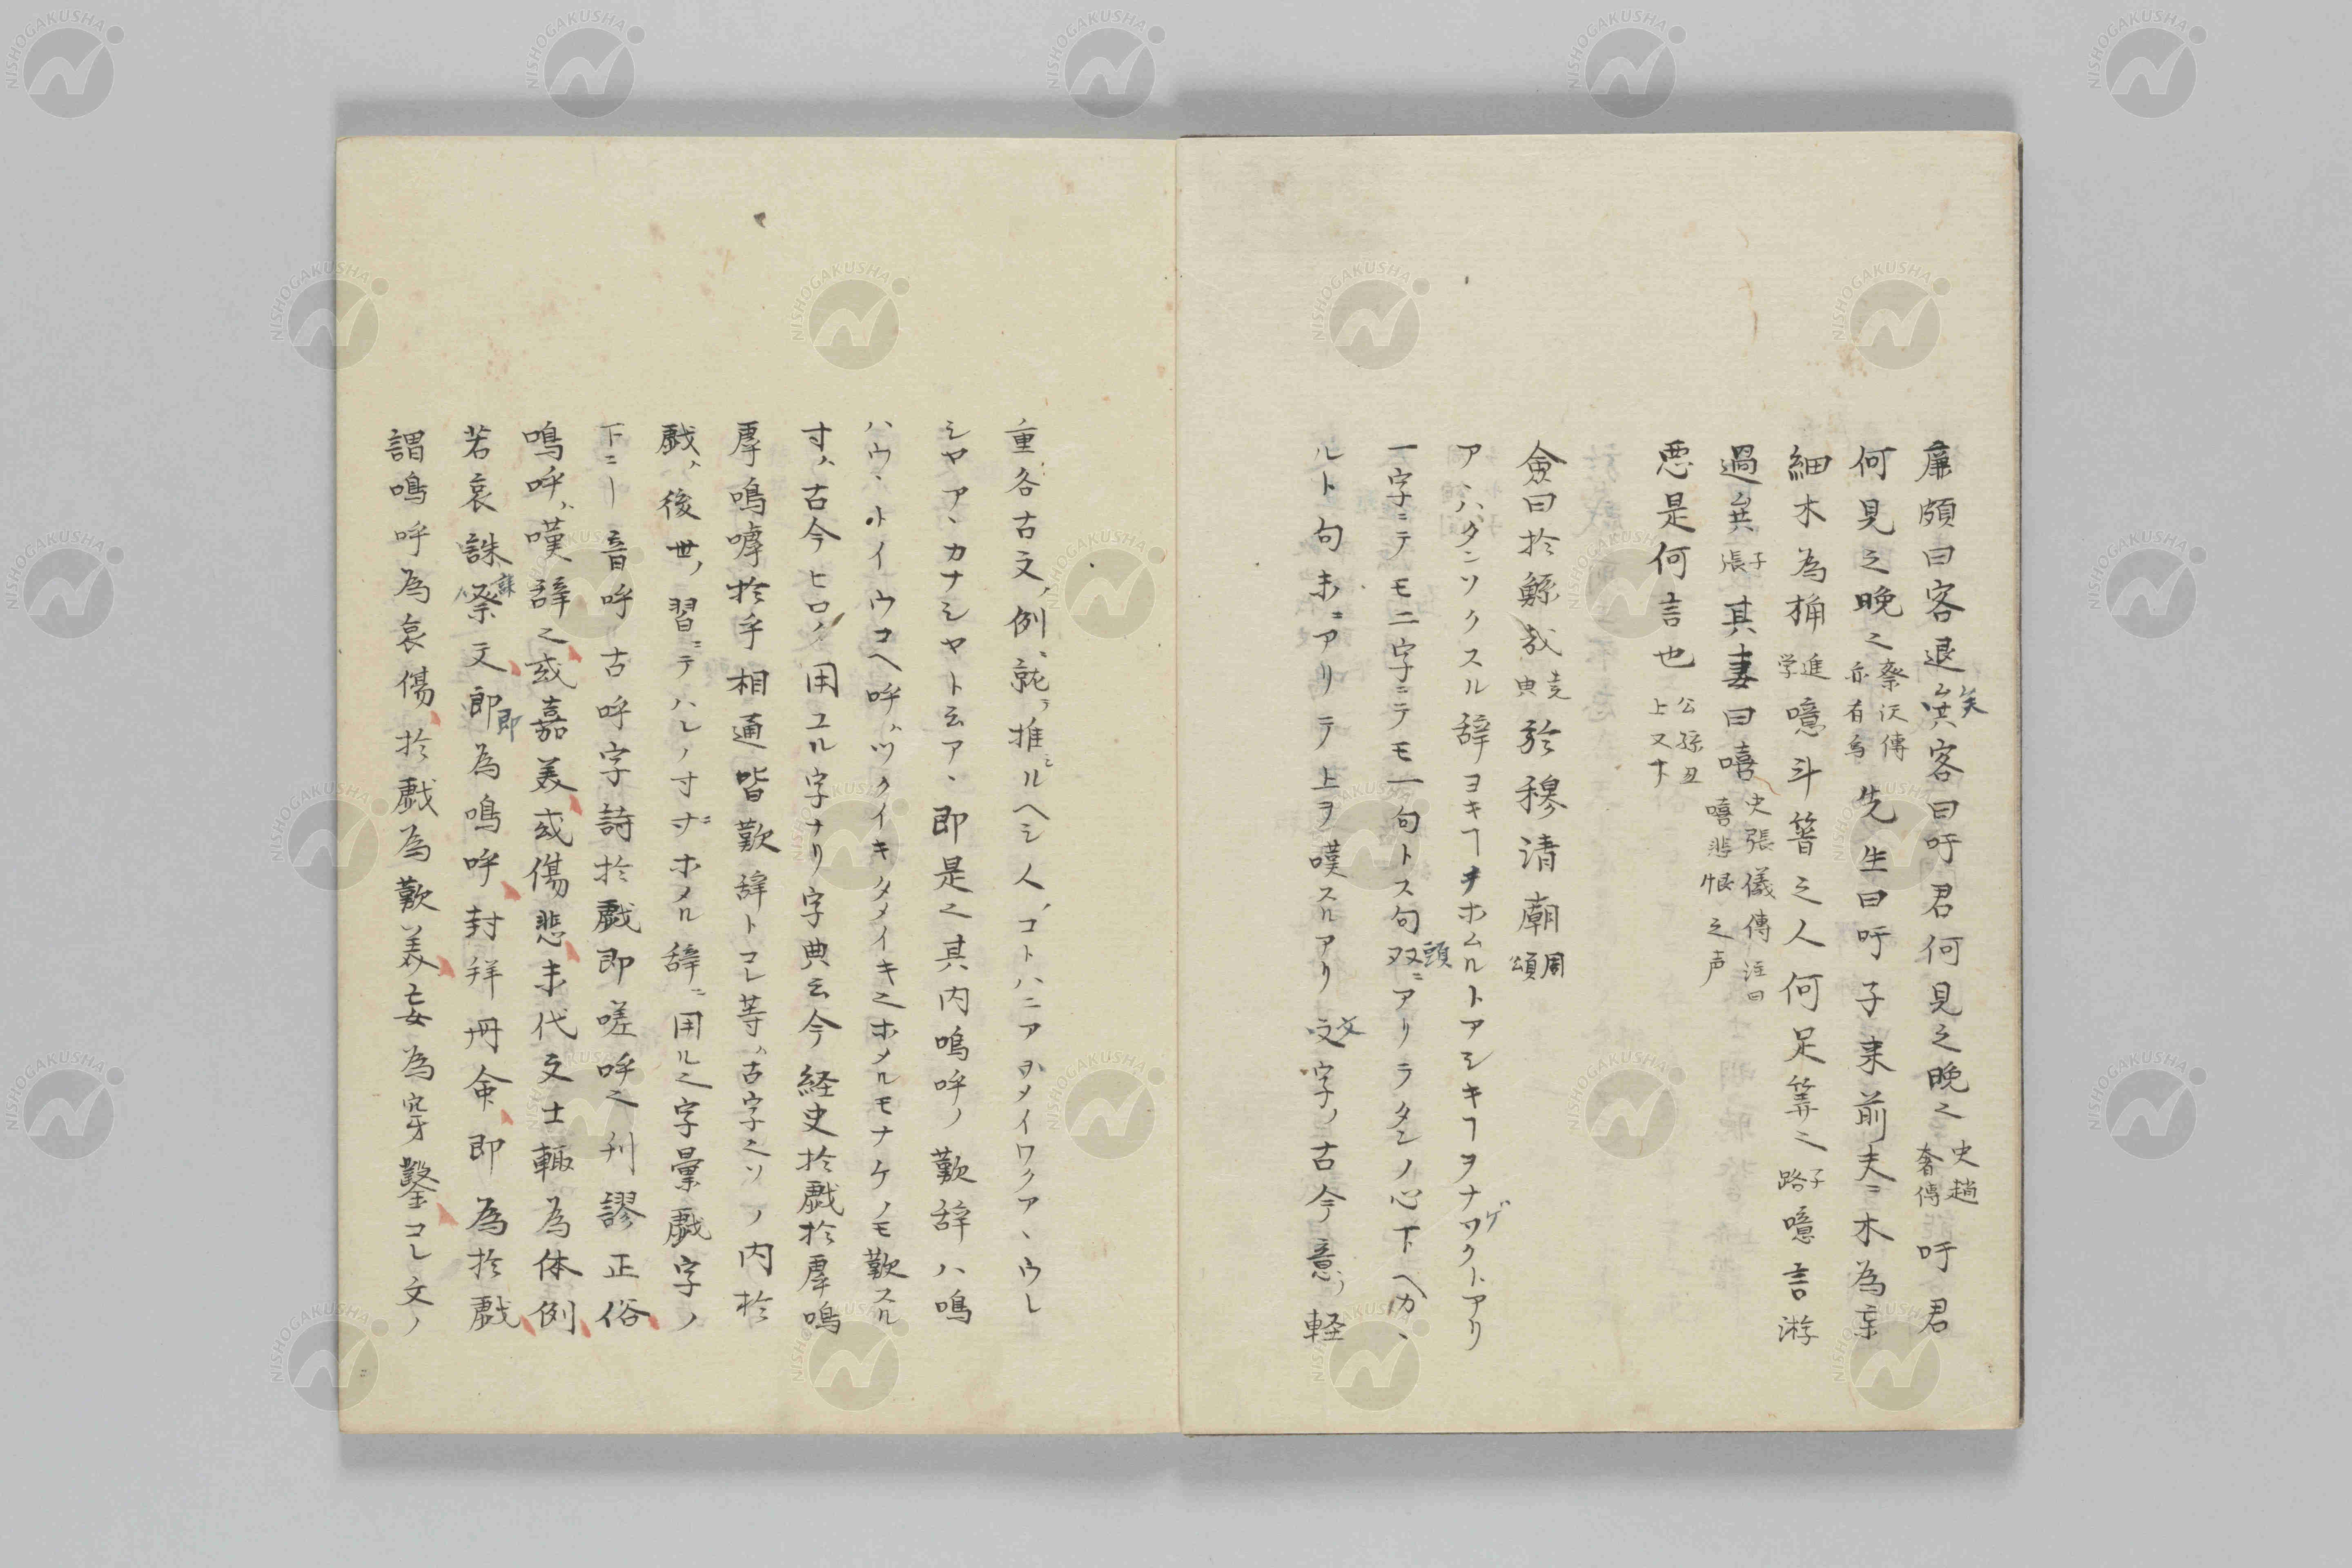 廉頗曰客退矣客曰吁君何見之晩之史趙奢傳吁君
何見之晩之蔡沢傳亦有焉先生曰吁子来前夫ニ木為宗
細木為桷進学噫斗筲之人何足筭之子路噫言游
過矣子張其妻曰嘻史張儀傳注曰嘻悲恨之声
悪是何言也公孫丑上又下
僉曰於鯀哉尭典於穆清廟周頌
アヽハタンソクスル辞ヨキヿヲホムルトアシキヿヲナゲクトアリ
一字ニテモ二字ニテモ一句トス句頭ニアリテタンノ心下ヘカヽ
ルト句末ニアリテ上ヲ嘆スルアリ文字ノ古今意ノ軽
重各古文ノ例ニ就テ推シルヘシ人ノコトハニアヲメイワクアヽウレ
シヤアヽカナシヤト云アヽ即是之其内嗚呼ノ歎辞ハ嗚
ハウヽホイウコヘ呼ハツクイキタメイキ之ホメルモナケノモ歎スル
寸ハ古今ヒロク用ユル字ナリ字典云今経史於戯於虖嗚
虖嗚嘑於乎相通皆歎辞トコレ等ハ古字之ソノ内於
戯ハ後世ノ習ニテハレノ寸ホメル辞ニ用ル之字彙戯字ノ
下ニ一音呼古呼字詩於戯即嗟呼之刊謬正俗
嗚呼ハ嘆辞之或嘉美或傷悲末代文士輙為体例
若哀誄祭文即為嗚呼封拝冊命即為於戯
謂嗚呼為哀傷於戯為歎美妄為穿鑿コレ文ノ
NISHOGAKUSHA